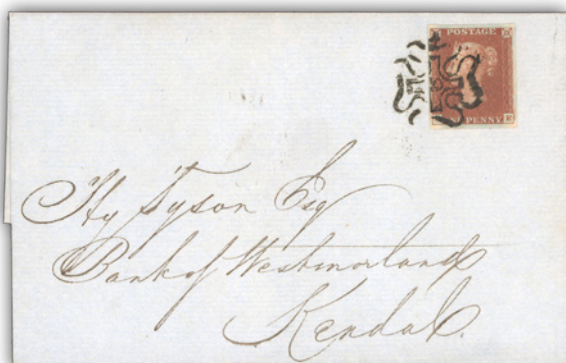 POSTAGE
PENNY
Hy Tyson Esq
Bank of Westmorland
Kendal.